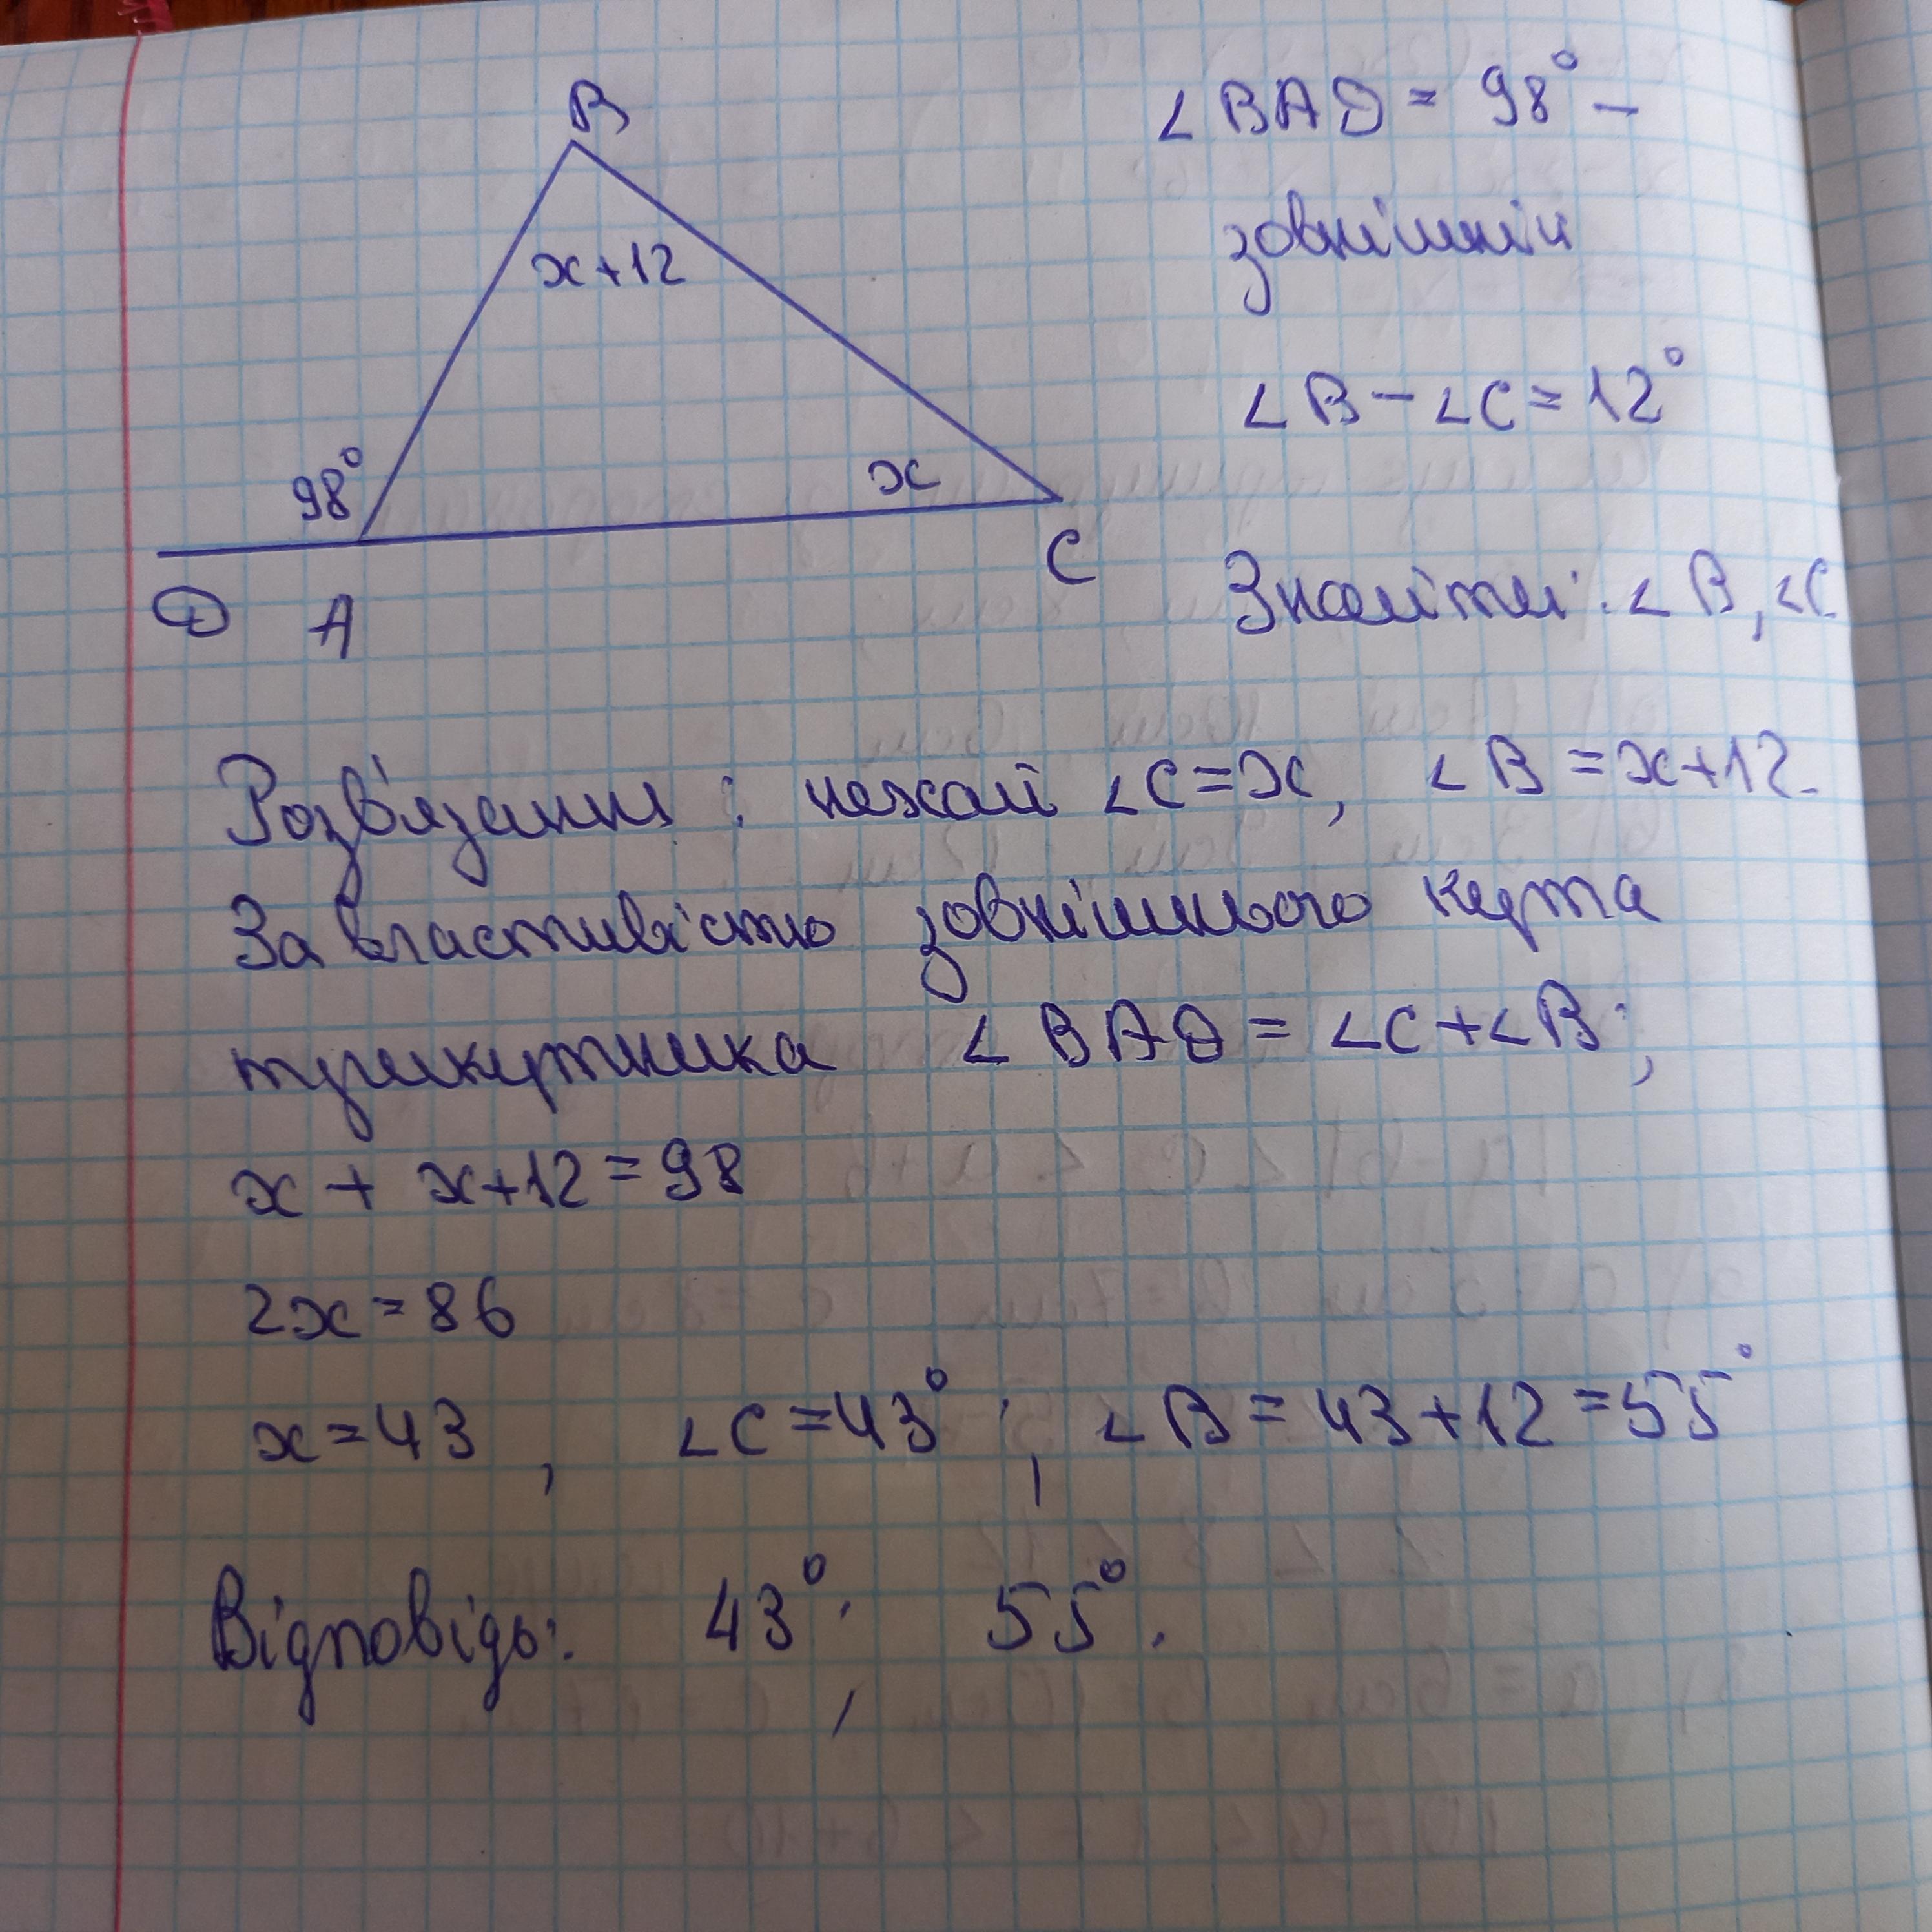 B
x+12
98°
x
D A
C
∠BAD = 98° –
зовнішній
∠B – ∠C = 12°
Знайти: ∠B, ∠C
Розв'язання: нехай ∠C = x, ∠B = x+12.
За властивістю зовнішнього кута
трикутника ∠BAD = ∠C + ∠B;
x + x+12 = 98
2x = 86
x = 43, ∠C = 43°; ∠B = 43+12 = 55°
Відповідь: 43°; 55°.